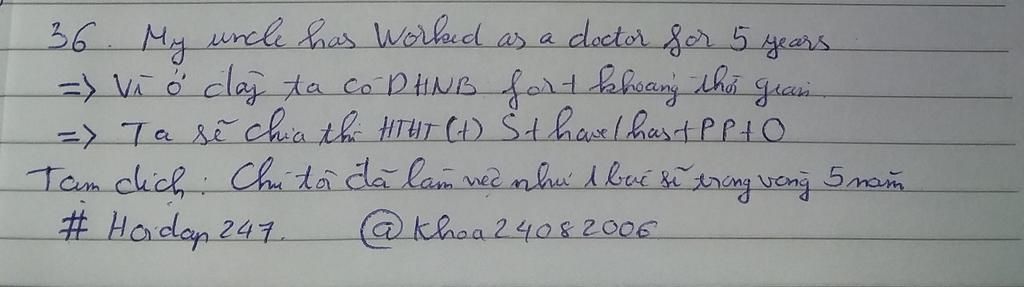 36. My uncle has Worked as a doctor for 5 years
=> Vì ở đây ta có DHNB for + khoảng thời gian.
=> Ta sẽ chia thì HTHT (+) S + have / has + PP + O
Tạm dịch : Chú tôi đã làm việc như 1 bác sĩ trong vòng 5 năm
# Hoidap 247. @khoa24082006